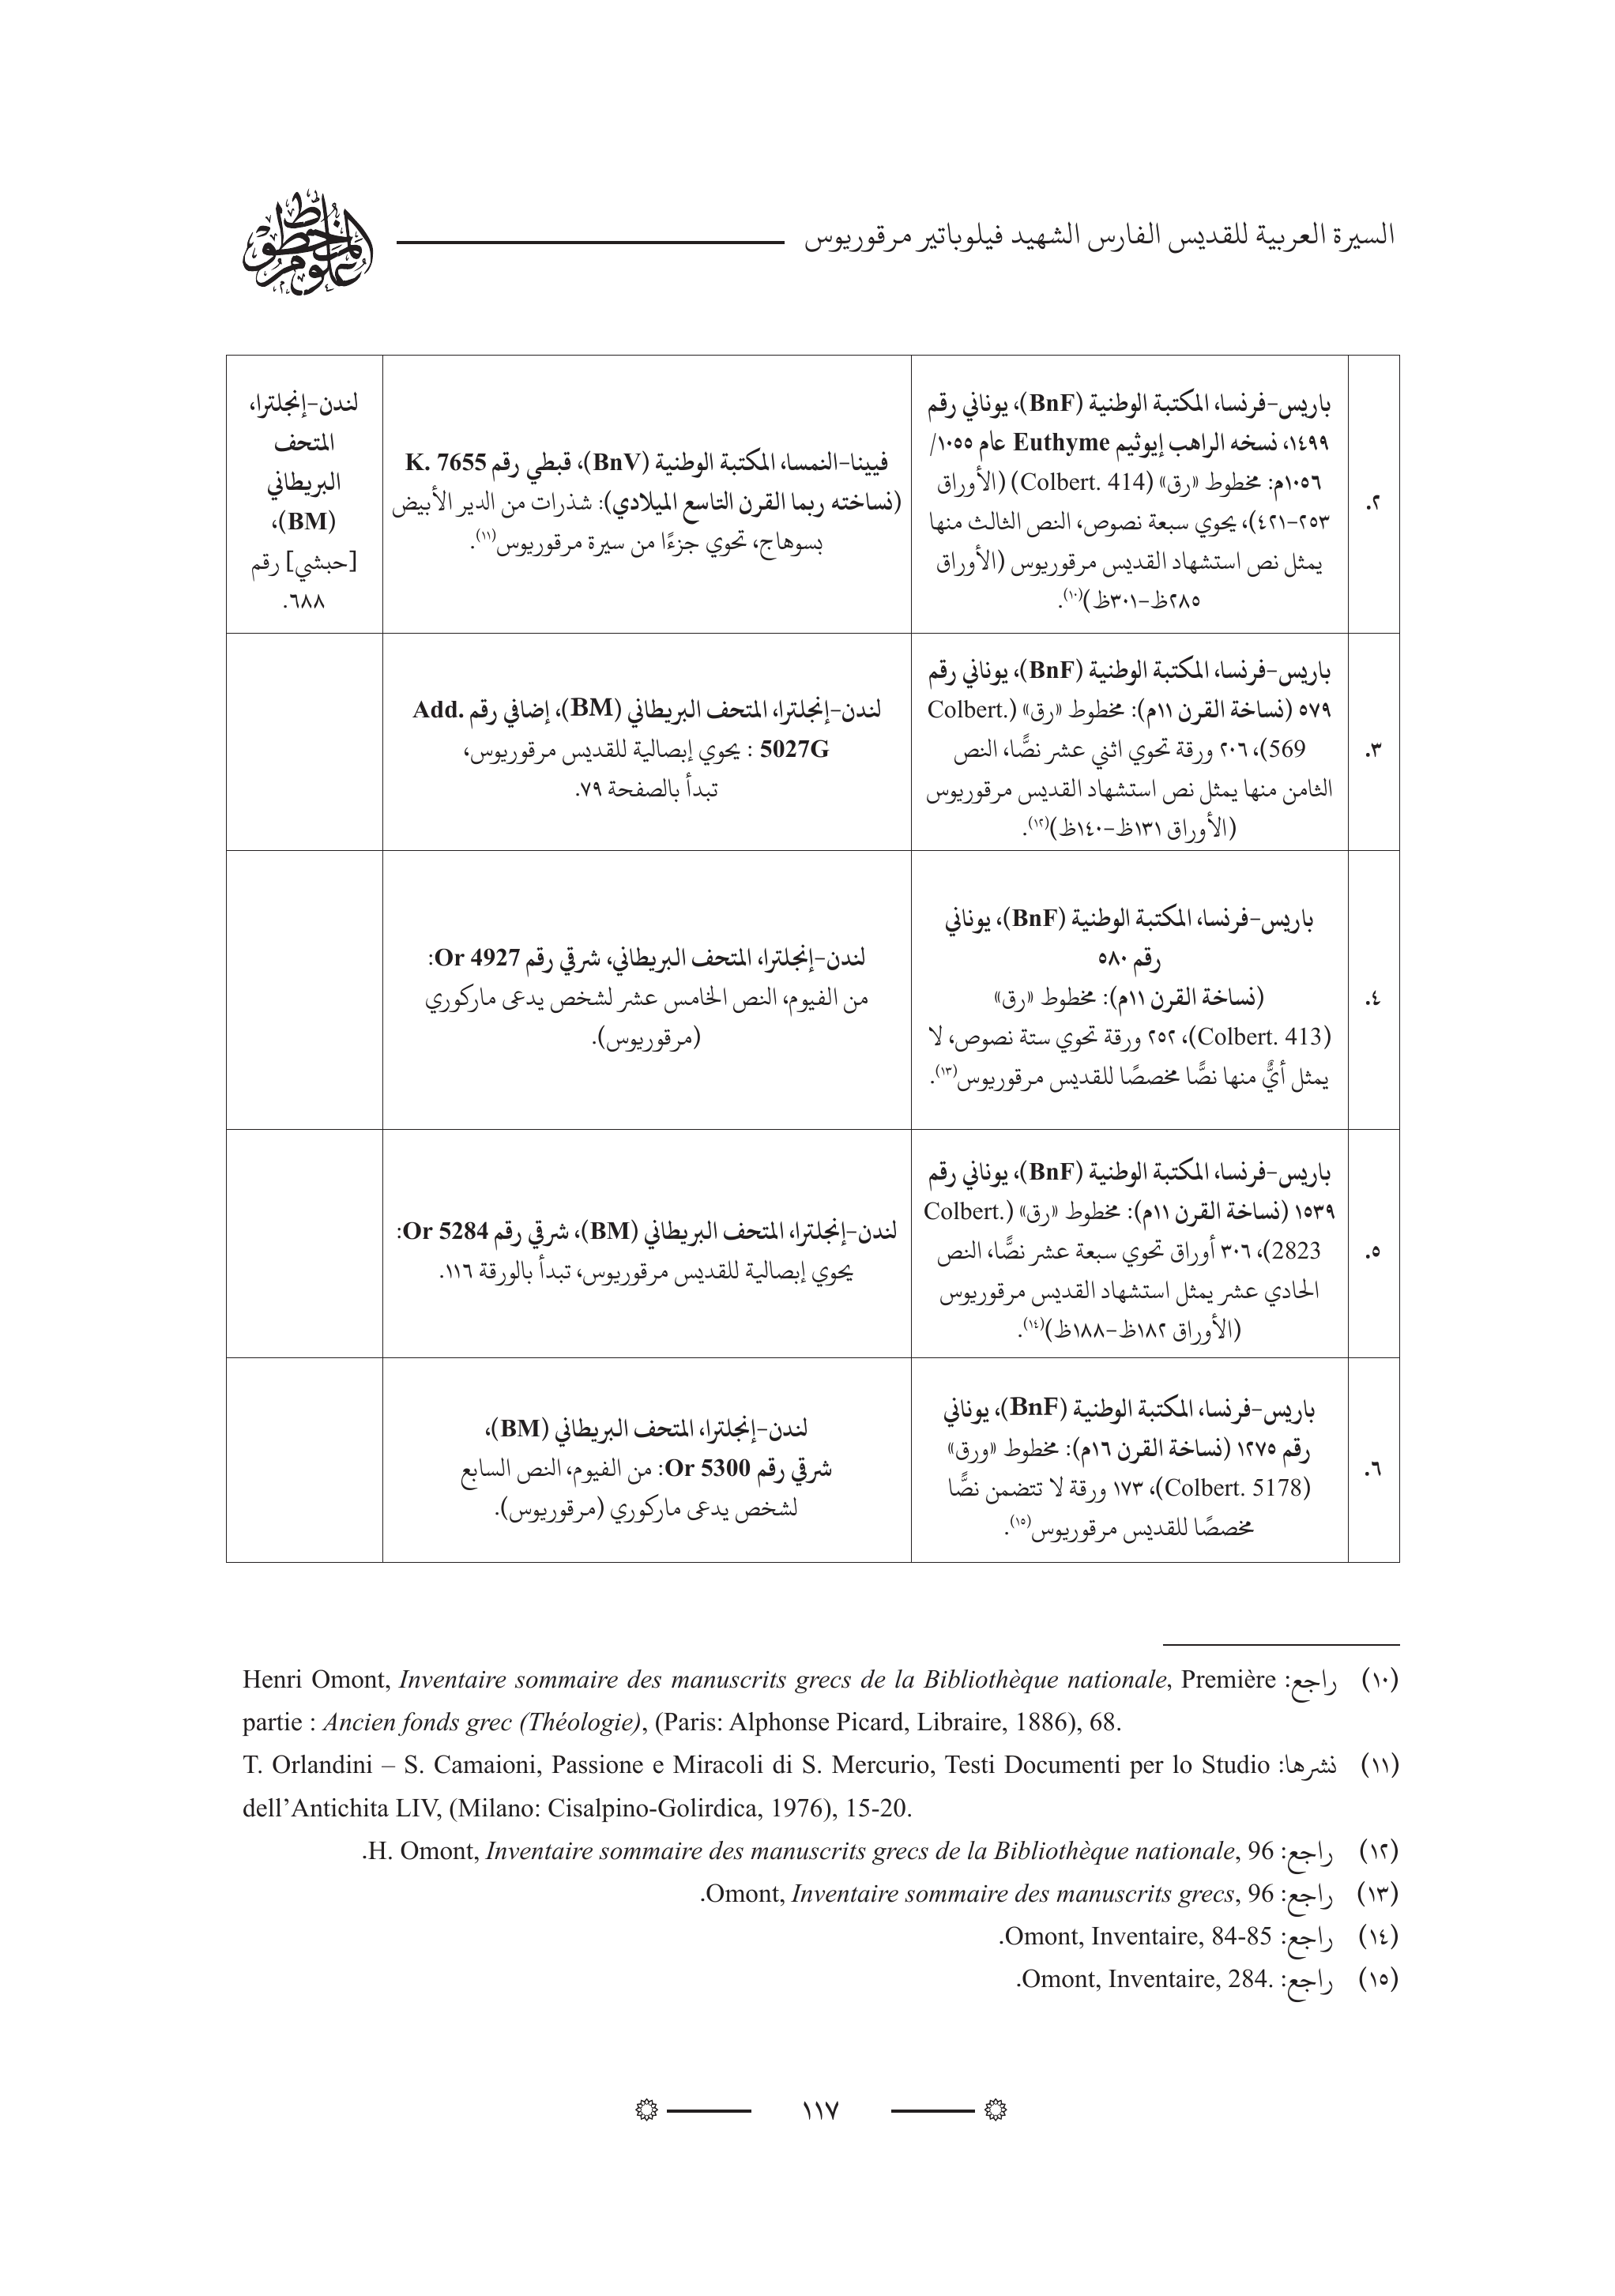 السيرة العربية للقديس الفارس الشهيد فيلوباتير مرقوريوس
علوم المخطوط
٢.
باريس-فرنسا، المكتبة الوطنية (BnF)، يوناني رقم
١٤٩٩، نسخه الراهب إيوثيم Euthyme عام ١٠٥٥/
١٠٥٦م: مخطوط «رق» (Colbert. 414) (الأوراق
٢٥٣-٤٢١)، يحوي سبعة نصوص، النص الثالث منها
يمثل نص استشهاد القديس مرقوريوس (الأوراق
٢٨٥ظ-٣٠١ظ)(١٠).
فيينا-النمسا، المكتبة الوطنية (BnV)، قبطي رقم K. 7655
(نساخته ربما القرن التاسع الميلادي): شذرات من الدير الأبيض
بسوهاج، تحوي جزءًا من سيرة مرقوريوس(١١).
لندن-إنجلترا،
المتحف
البريطاني
(BM)،
[حبشي] رقم
٦٨٨.
٣.
باريس-فرنسا، المكتبة الوطنية (BnF)، يوناني رقم
٥٧٩ (نساخة القرن ١١م): مخطوط «رق» (Colbert.
569)، ٢٠٦ ورقة تحوي اثني عشر نصًّا، النص
الثامن منها يمثل نص استشهاد القديس مرقوريوس
(الأوراق ١٣١ظ-١٤٠ظ)(١٢).
لندن-إنجلترا، المتحف البريطاني (BM)، إضافي رقم Add.
5027G : يحوي إبصالية للقديس مرقوريوس،
تبدأ بالصفحة ٧٩.
٤.
باريس-فرنسا، المكتبة الوطنية (BnF)، يوناني
رقم ٥٨٠
(نساخة القرن ١١م): مخطوط «رق»
(Colbert. 413)، ٢٥٢ ورقة تحوي ستة نصوص، لا
يمثل أيٌّ منها نصًّا مخصصًا للقديس مرقوريوس(١٣).
لندن-إنجلترا، المتحف البريطاني، شرقي رقم Or 4927:
من الفيوم، النص الخامس عشر لشخص يدعى ماركوري
(مرقوريوس).
٥.
باريس-فرنسا، المكتبة الوطنية (BnF)، يوناني رقم
١٥٣٩ (نساخة القرن ١١م): مخطوط «رق» (Colbert.
2823)، ٣٠٦ أوراق تحوي سبعة عشر نصًّا، النص
الحادي عشر يمثل استشهاد القديس مرقوريوس
(الأوراق ١٨٢ظ-١٨٨ظ)(١٤).
لندن-إنجلترا، المتحف البريطاني (BM)، شرقي رقم Or 5284:
يحوي إبصالية للقديس مرقوريوس، تبدأ بالورقة ١١٦.
٦.
باريس-فرنسا، المكتبة الوطنية (BnF)، يوناني
رقم ١٢٧٥ (نساخة القرن ١٦م): مخطوط «ورق»
(Colbert. 5178)، ١٧٣ ورقة لا تتضمن نصًّا
مخصصًا للقديس مرقوريوس(١٥).
لندن-إنجلترا، المتحف البريطاني (BM)،
شرقي رقم Or 5300: من الفيوم، النص السابع
لشخص يدعى ماركوري (مرقوريوس).
(١٠) راجع: Henri Omont, Inventaire sommaire des manuscrits grecs de la Bibliothèque nationale, Première
partie : Ancien fonds grec (Théologie), (Paris: Alphonse Picard, Libraire, 1886), 68.
(١١) نشرها: T. Orlandini – S. Camaioni, Passione e Miracoli di S. Mercurio, Testi Documenti per lo Studio
dell’Antichita LIV, (Milano: Cisalpino-Golirdica, 1976), 15-20.
(١٢) راجع: H. Omont, Inventaire sommaire des manuscrits grecs de la Bibliothèque nationale, 96.
(١٣) راجع: Omont, Inventaire sommaire des manuscrits grecs, 96.
(١٤) راجع: Omont, Inventaire, 84-85.
(١٥) راجع: Omont, Inventaire, 284..
١١٧